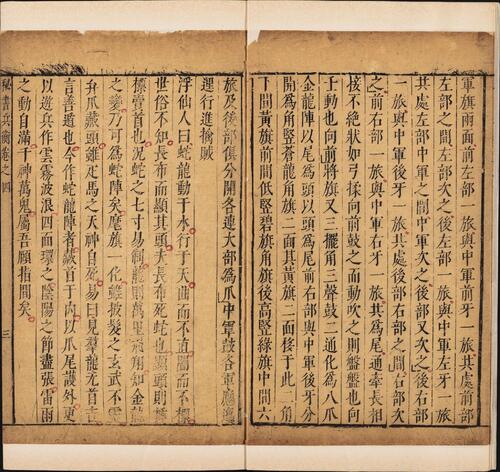 軍旗兩面前左部與中軍前牙一旅其處前部
左部之間左部次之後左部與中軍左牙一旅
其處左部中軍之間中軍次之後部又次之後右部
一旅與中軍後牙一旅其處後部右部之間右部次
之前右部一旅與中軍右牙一旅其為尾通牽長相
接不絶狀如弓揉向前鼓之而動吹之則盤盤也向
上動也向前將旗又三擺角三聲鼓二通化為八爪
金龍陣以尾為頭以頭為尾前右部與中軍後牙分
開為角竪蒼龍角旗二面其黃旗二面移于此二角
丅間黃旗前間低竪碧旗角旗後高竪綠旗中間六
旅及後部俱分開各連大部為爪中軍鼓各軍應
運行進擒賊
浮仙人曰蛇龍動于水行于天曲而不直屬而不標
世俗不知長布而顯其頭夫長布死蛇也顯頭則
標當首也況蛇之七寸易制龍則萬里飛角如金
之變乃可為蛇陣矣麾旗一化雖披髮之玄武不
爪藏頭雖疋馬之天神自死易曰見羣龍无首吉
言善遁也今作蛇龍陣者藏首于內以爪尾護外更
以遊兵作雲霧波浪四面環之陰陽之節盡張雷雨
之動自滿千神萬鬼屬吾顧指間矣
秘書兵衡卷之四
三